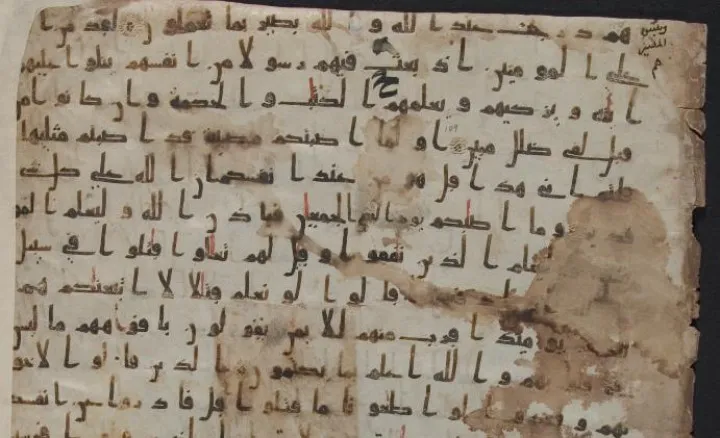 هم درجت عند الله و الله بصير بما يعملون لقد من ا
لله على المومنين اذ بعث فيهم رسولا من انفسهم يتلوا عليهم
ايته و يزكيهم و يعلمهم الكتب و الحكمة و ان كانوا من
قبل لفى ضلل مبين او لما اصبتكم مصيبة قد اصبتم مثليها
قلتم انى هذا قل هو من عند انفسكم ان الله على كل شى
و ما اصبكم يوم التقى الجمعن فباذن الله و ليعلم المو
ليعلم الذين نفقوا و قيل لهم تعلوا قتلوا فى سبيل
قالوا لو نعلم قتلا لا تبعنكم هم
يومئذ اقرب منهم للايمن يقولون بافوههم ما ليس
قلوبهم و الله اعلم بما يكتمون الذين قالوا لاخو
نهم و قعدوا لو اطعونا ما قتلوا قل فادروا عن انفسكم